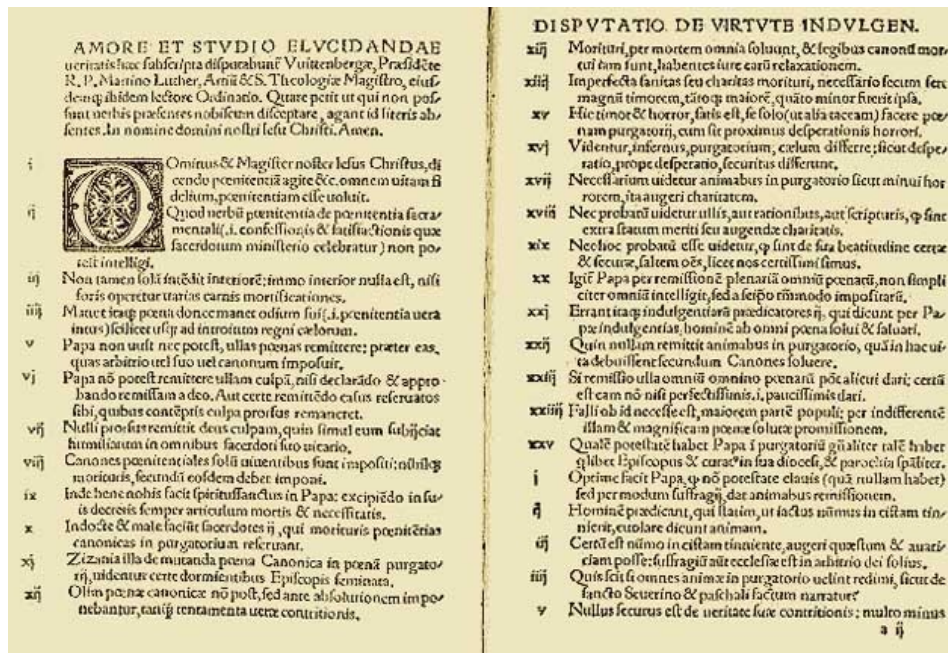 AMORE ET STVDIO ELVCIDANDAE
ueritatis hæc subscripta disputabunt̃ Vuittenbergæ, Præsidẽte
R. P. Martino Luther, Artiũ & S. Theologiæ Magistro, eius⸗
demq; ibidem lectore Ordinario. Quare petit ut qui non pos⸗
sunt uerbis præsentes nobiscum disceptare, agant id literis ab⸗
sentes. In nomine domini nostri Iesu Christi. Amen.
i DOminus & Magister noster Iesus Christus, di
cendo pœnitentiã agite &c. omnem uitam fi
delium, pœnitentiam esse uoluit.
ij Quod uerbũ pœnitentia de pœnitentia sacra⸗
mentali(.i. confessionis & satisfactionis quæ
sacerdotum ministerio celebratur) non po⸗
test intelligi.
iij Non tamen solã intẽdit interiorẽ: immo interior nulla est, nisi
foris operetur uarias carnis mortificationes.
iiij Manet itaq; pœna donec manet odium sui(.i. pœnitentia uera
intus) scilicet usq; ad introitum regni cælorum.
v Papa non uult nec potest, ullas pœnas remittere: præter eas,
quas arbitrio uel suo uel canonum imposuit.
vj Papa nõ potest remittere ullam culpã, nisi declarãdo & appro⸗
bando remissam a deo. Aut certe remittẽdo casus reseruatos
sibi, quibus contẽptis culpa prorsus remaneret.
vij Nulli prorsus remittit deus culpam, quin simul eum subijciat
humiliatum in omnibus sacerdoti suo uicario.
viij Canones pœnitentiales solũ uiuentibus sunt impositi: nihilq;
morituris, secundũ eosdem debet imponi.
ix Inde bene nobis facit spiritussanctus in Papa: excipiẽdo in su⸗
is decretis semper articulum mortis & necessitatis.
x Indocte & male faciũt sacerdotes ij, qui morituris pœnitẽtias
canonicas in purgatorium reseruant.
xj Zizania illa de mutanda pœna Canonica in pœnã purgato⸗
rij, uidentur certe dormientibus Episcopis seminata.
xij Olim pœnæ canonicæ nõ post, sed ante absolutionem impo⸗
nebantur, tanq̃ tentamenta ueræ contritionis.
DISPVTATIO DE VIRTVTE INDVLGEN.
xiij Morituri, per mortem omnia soluunt, & legibus canonũ mor⸗
tui iam sunt, habentes iure earũ relaxationem.
xiiij Imperfecta sanitas seu charitas morituri, necessario secum fert
magnũ timorem, tãtoq; maiorẽ, quãto minor fuerit ipsa.
xv Hic timor & horror, satis est, se solo (ut alia taceam) facere pœ⸗
nam purgatorij, cum sit proximus desperationis horrori.
xvj Videntur, infernus, purgatorium, cælum differre: sicut despe⸗
ratio, prope desperatio, securitas differunt.
xvij Necessarium uidetur animabus in purgatorio sicut minui hor
rorem, ita augeri charitatem.
xviij Nec probatũ uidetur ullis, aut rationibus, aut scripturis, q̃ sint
extra statum meriti seu augendæ charitatis.
xix Nec hoc probatũ esse uidetur, q̃ sint de sua beatitudine certæ
& securæ, saltem oẽs, licet nos certissimi simus.
xx Igit̃ Papa per remissionẽ plenariã omniũ pœnarũ, non simpli
citer omniũ intelligit, sed a seipo tm̃modo impositarũ.
xxj Errant itaq; indulgentiarũ prædicatores ij, qui dicunt per Pa⸗
pæ indulgentias, hominẽ ab omni pœna solui & saluari.
xxij Quin nullam remittit animabus in purgatorio, quã in hac ui⸗
ta debuissent secundum Canones soluere.
xxiij Si remissio ulla omniũ omnino pœnarũ põt alicui dari: certũ
est eam nõ nisi perfectissimis.i. paucissimis dari.
xxiiij Falli ob id necesse est, maiorem partẽ populi: per indifferentẽ
illam & magnificam pœnæ solutæ promissionem.
xxv Qualẽ potestatẽ habet Papa ĩ purgatoriũ gñaliter talẽ habet
q̃libet Episcopus & curatꝰ in sua diocesi, & parochia spãliter.
i Optime facit Papa, q̃ nõ potestate clauis (quã nullam habet)
sed per modum suffragij, dat animabus remissionem.
ij Hominẽ prædicant, qui statim, ut iactus nũmus in cistam tin⸗
nierit, euolare dicunt animam.
iij Certũ est nũmo in cistam tinniente, augeri quæstum & auari⸗
ciam posse: suffragiũ aũt ecclesiæ est in arbitrio dei solius.
iiij Quis scit si omnes animæ in purgatorio uelint redimi, sicut de
sancto Seuerino & paschali factum narratur?
v Nullus securus est de ueritate suæ contritionis: multo minus
a ij